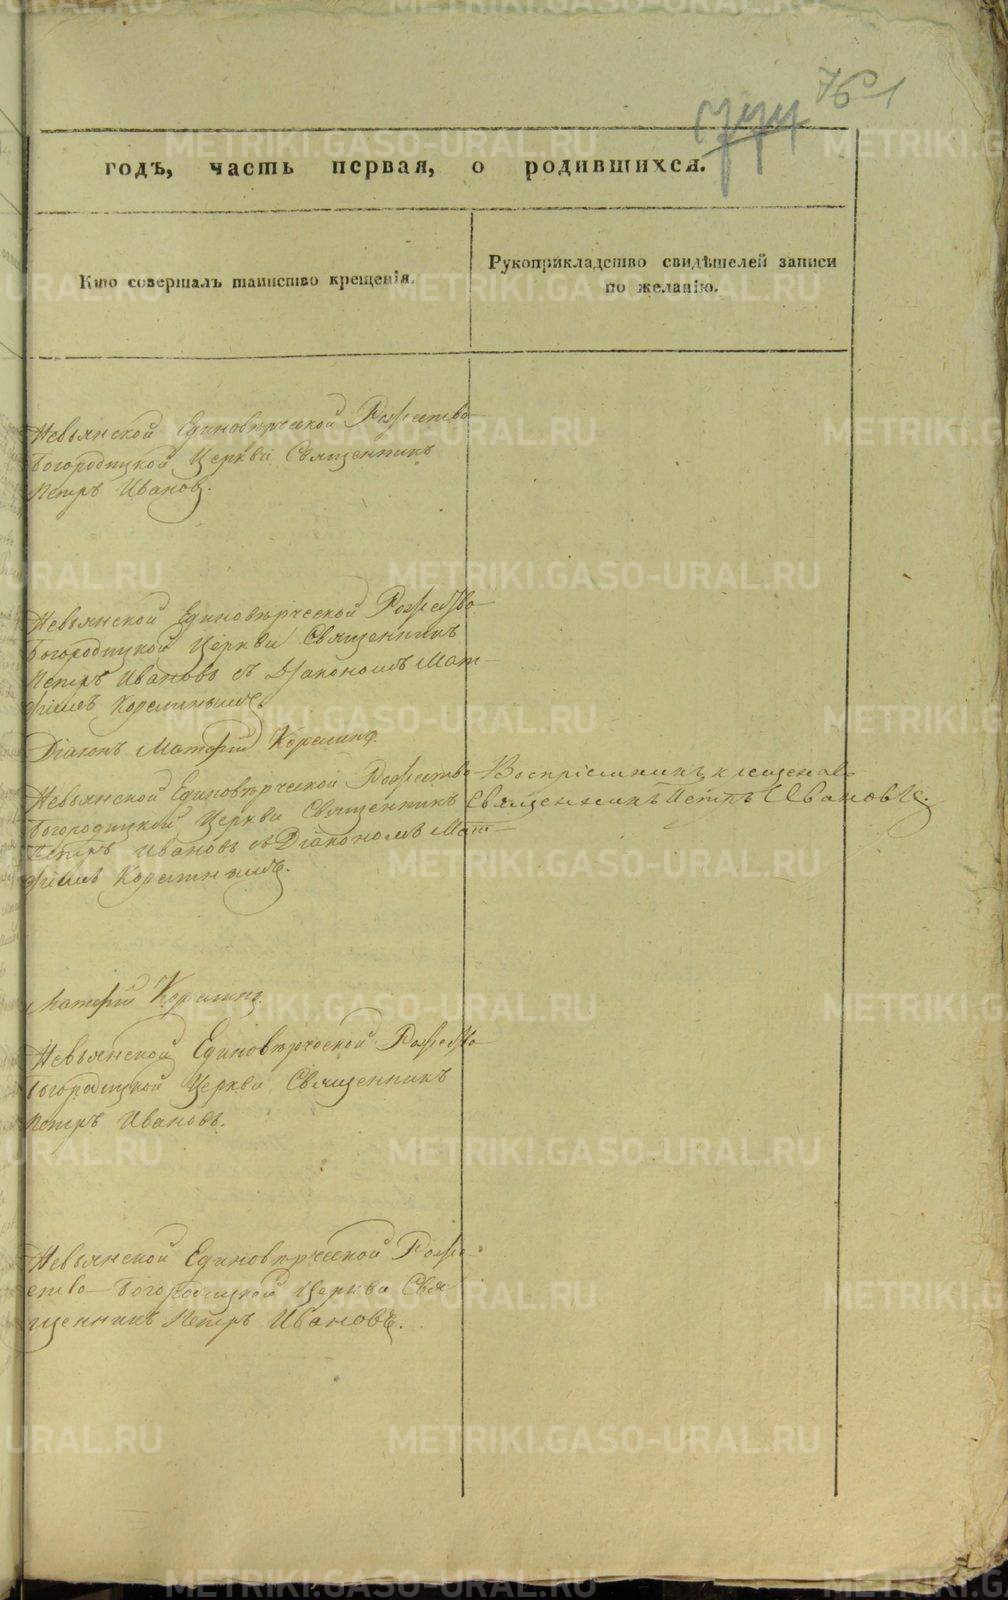 761
годъ, часть первая, о родившихся.
Кто совершалъ таинство крещенія.
Рукоприкладство свидѣтелей записи
по желанію.
Невьянской Единовѣрческой Рожество
Богородицкой Церкви Священникъ
Петръ Ивановъ.
Невьянской Единовѣрческой Рожество
Богородицкой Церкви Священникъ
Петръ Ивановъ съ Діакономъ Мат-
фіемъ Корелинымъ.
Діаконъ Матфій Корелинъ.
Невьянской Единовѣрческой Рожество
Богородицкой Церкви Священникъ
Петръ Ивановъ съ Діакономъ Мат-
фіемъ Корелинымъ.
Воспріемникъ
Священникъ Петръ Ивановъ
Матфій Корелинъ.
Невьянской Единовѣрческой Рожество
Богородицкой Церкви Священникъ
Петръ Ивановъ.
Невьянской Единовѣрческой Роже-
ство Богородицкой Церкви Свя
щенникъ Петръ Ивановъ.
METRIKI.GASO-URAL.RU